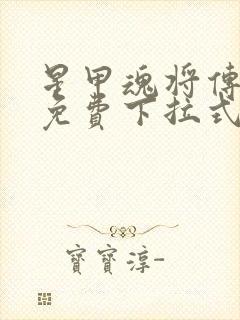 星甲魂将傳
免費下拉式
寶寶淳-